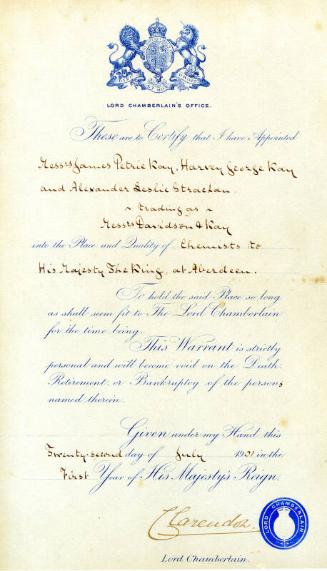 LORD CHAMBERLAIN'S OFFICE.
These are to Certify that I have Appointed
Messrs James Petrie Kay, Harvey George Kay
and Alexander Leslie Strachan
~ trading as ~
Messrs Davidson & Kay
into the Place and Quality of Chemists to
His Majesty The King, at Aberdeen.
To hold the said Place so long
as shall seem fit to The Lord Chamberlain
for the time being.
This Warrant is strictly
personal and will become void on the Death,
Retirement or Bankruptcy of the persons
named therein.
Given under my Hand this
Twenty-second day of July 1901 in the
First Year of His Majesty's Reign.
Clarendon
Lord Chamberlain.
LORD CHAMBERLAIN